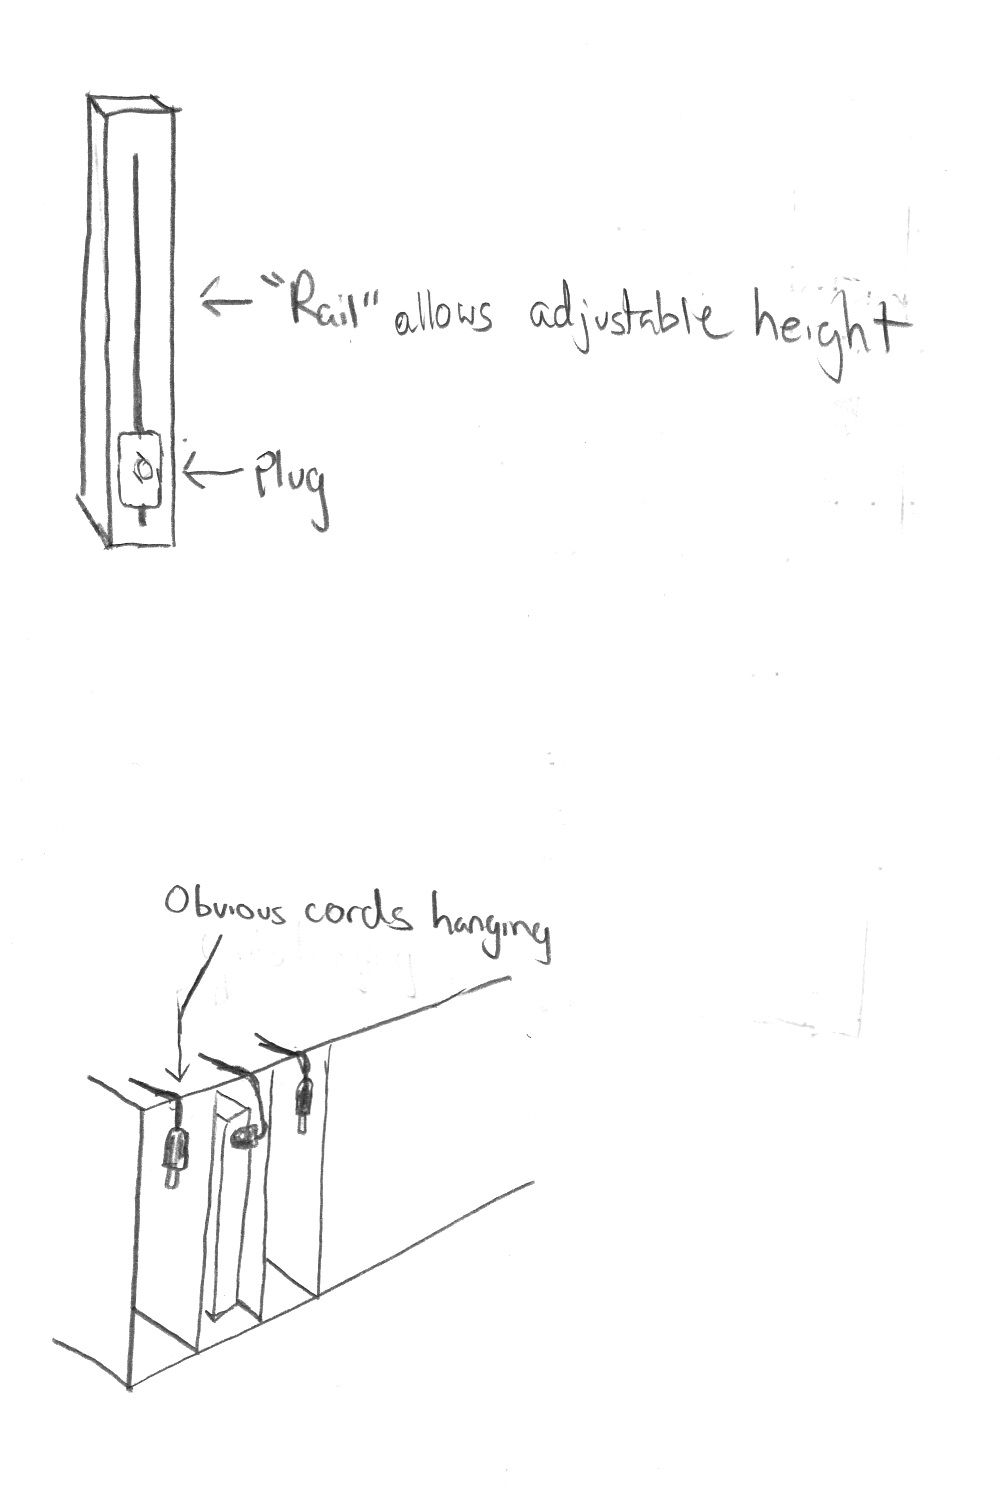 "Rail" allows adjustable height
Plug
Obvious cords hanging